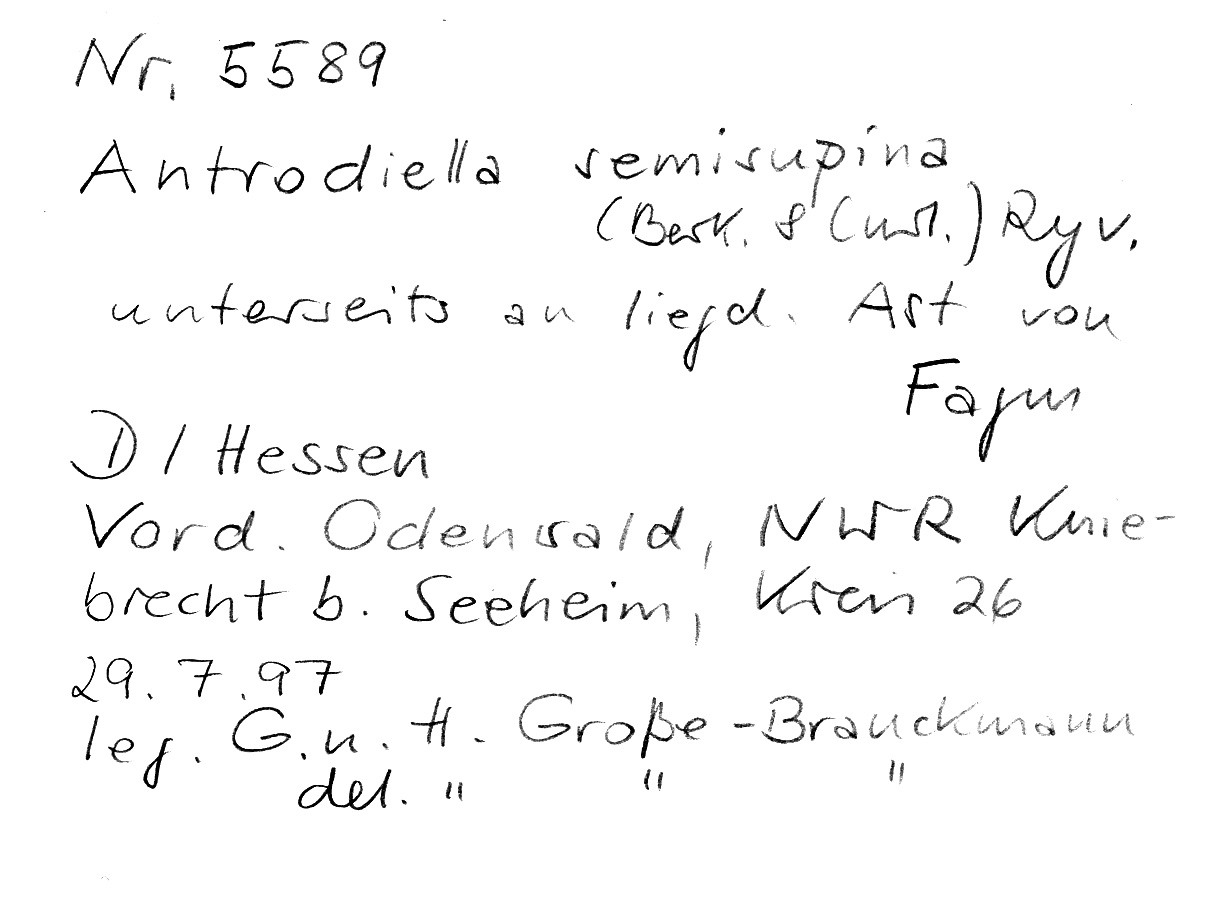 Nr. 5589
Antrodiella semisupina
(Berk. & Curt.) Ryv.
unterseits an liegd. Ast von
Fagus
D / Hessen
Vord. Odenwald, NWR Knie-
brecht b. Seeheim, Kreis 26
29.7.97
leg. G. u. H. Große-Brauckmann
det. " " "